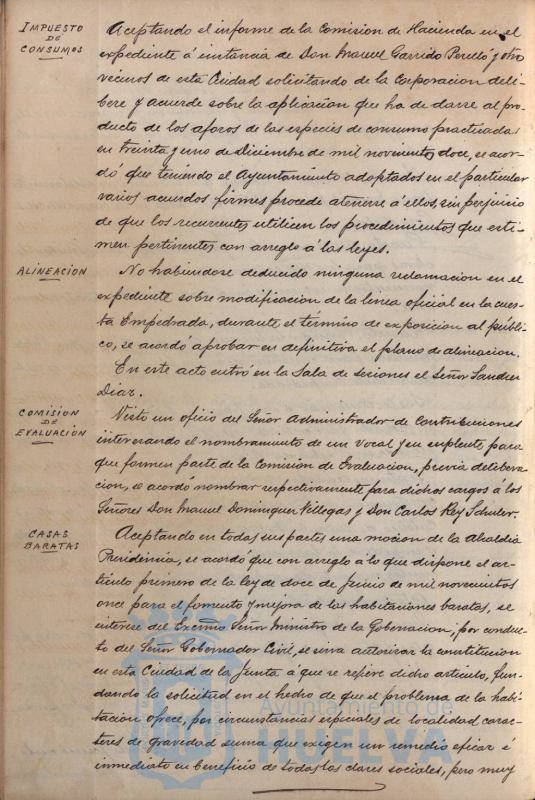 IMPUESTO
DE
CONSUMOS
Aceptando el informe de la Comision de Hacienda en el
expediente á instancia de Don Manuel Garrido Perelló y otro
vecinos de esta Ciudad solicitando de la Corporacion deli-
bere y acuerde sobre la aplicacion que ha de darse al pro-
ducto de los aforos de las especies de consumo practicadas
en treinta y uno de Diciembre de mil novecientos doce, se acor-
dó que teniendo el Ayuntamiento adoptados en el particular
varios acuerdos firmes procede atenerse á ellos, sin perjuicio
de que los recurrentes utilicen los procedimientos que esti-
men pertinentes con arreglo á las leyes.
ALINEACION
No habiendose deducido ninguna reclamacion en el
expediente sobre modificacion de la linea oficial en la cues-
ta Empedrada, durante el término de exposicion al públi-
co, se acordó aprobar en definitiva el plano de alineacion.
En este acto entró en la Sala de sesiones el Señor Sanchez
Diaz.
COMISION
DE
EVALUACIÓN
Visto un oficio del Señor Administrador de Contribuciones
interesando el nombramiento de un vocal y su suplente para
que formen parte de la Comision de Evaluacion, previa delibera-
cion, se acordó nombrar respectivamente para dichos cargos á los
Señores Don Manuel Dominguez Villegas y Don Carlos Rey Schuler.
CASAS
BARATAS
Aceptando en todas sus partes una mocion de la Alcaldia
Presidencia, se acordó que con arreglo á lo que dispone el ar-
tículo primero de la ley de doce de Junio de mil novecientos
once para el fomento y mejora de las habitaciones baratas, se
interese del Excmo Señor Ministro de la Gobernacion, por conduc-
to del Señor Gobernador Civil, se sirva autorizar la constitucion
en esta Ciudad de la Junta á que se refiere dicho articulo, fun-
dando la solicitud en el hecho de que el problema de la habi-
tacion ofrece, por circunstancias especiales de localidad carac-
teres de gravedad suma que exigen un remedio eficaz é
inmediato en beneficio de todas las clases sociales, pero muy
Ayuntamiento de
HUELVA